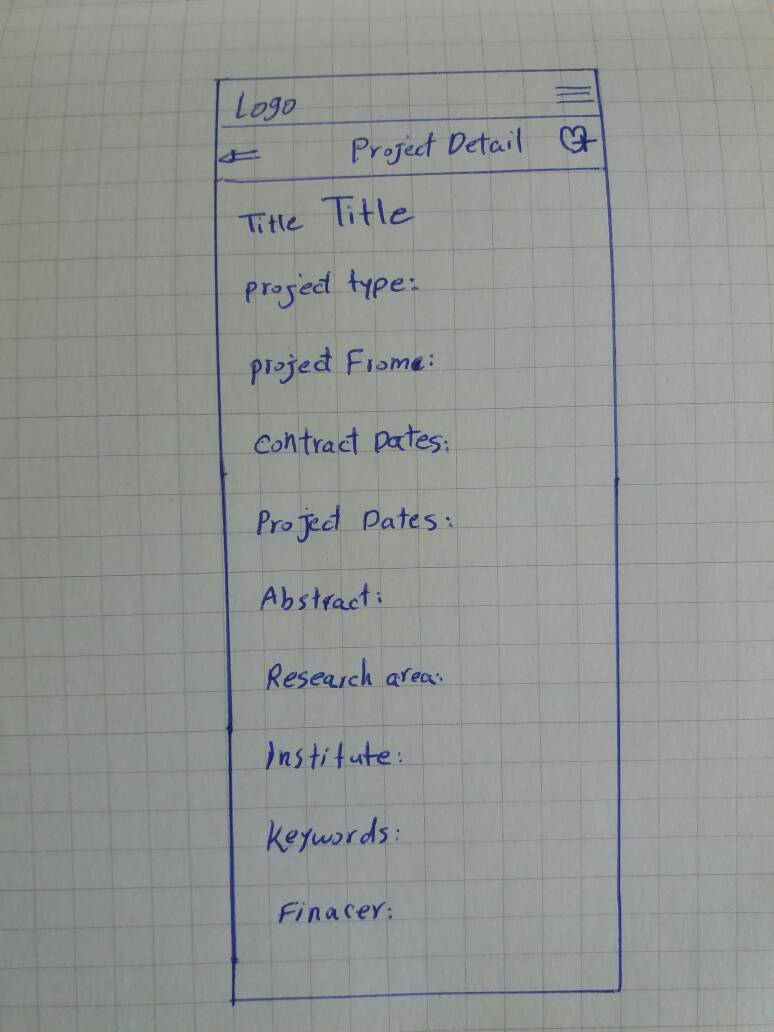 Logo
Project Detail
Title Title
project type:
project Frome:
Contract Dates:
Project Dates:
Abstract:
Research area:
Institute:
Keywords:
Finacer: